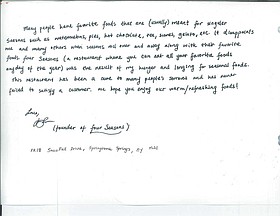 Many people have favorite foods that are (usually) meant for singular
seasons such as watermelons, pies, hot chocolate, tea, sumes, gelato, etc. It disappoints
me and many others when seasons roll over and away along with their favorite
foods. Four Seasons (a restaurant where you can eat all your favorite foods
anyday of the year) was the result of my hunger and longing for seasonal foods.
This restaurant has been a cure to many people's sorrows and has never
failed to satisfy a customer. We hope you enjoy our warm/refreshing foods!
Love,
(founder of Four Seasons)
Snowfall Drive, Springtime Springs, NY